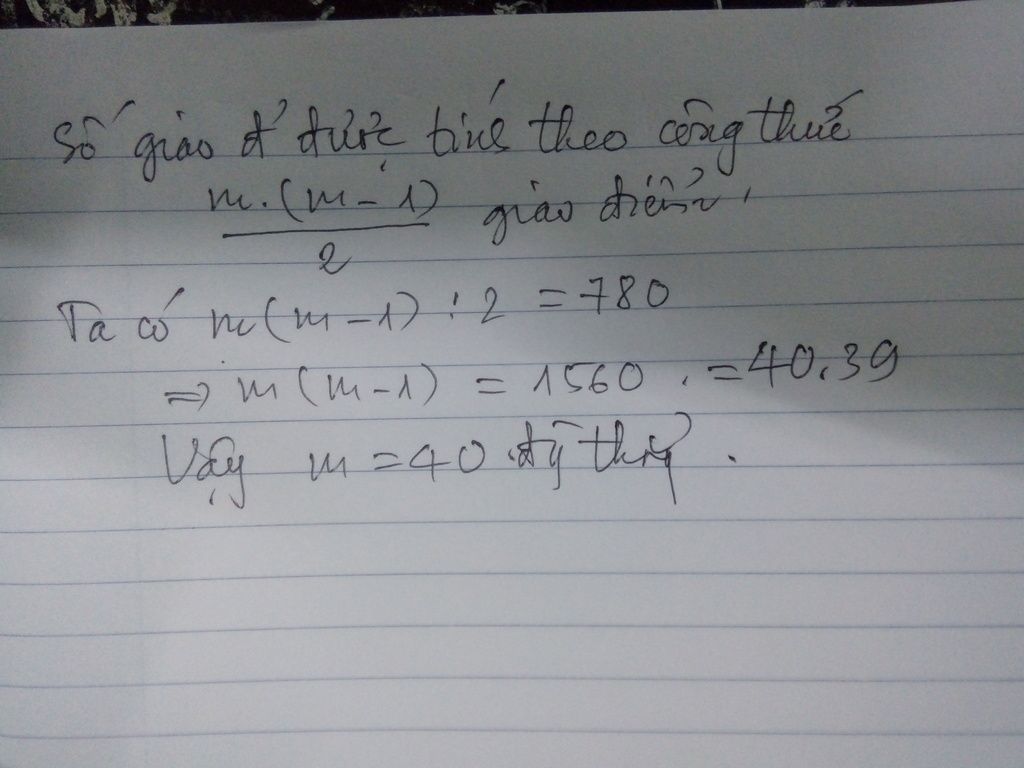 Số giao đ' được tính theo công thức
m.(m-1)/2 giao điểm.
Ta có m(m-1):2 = 780
=> m(m-1) = 1560. = 40.39
Vậy m = 40 đg thg̉.